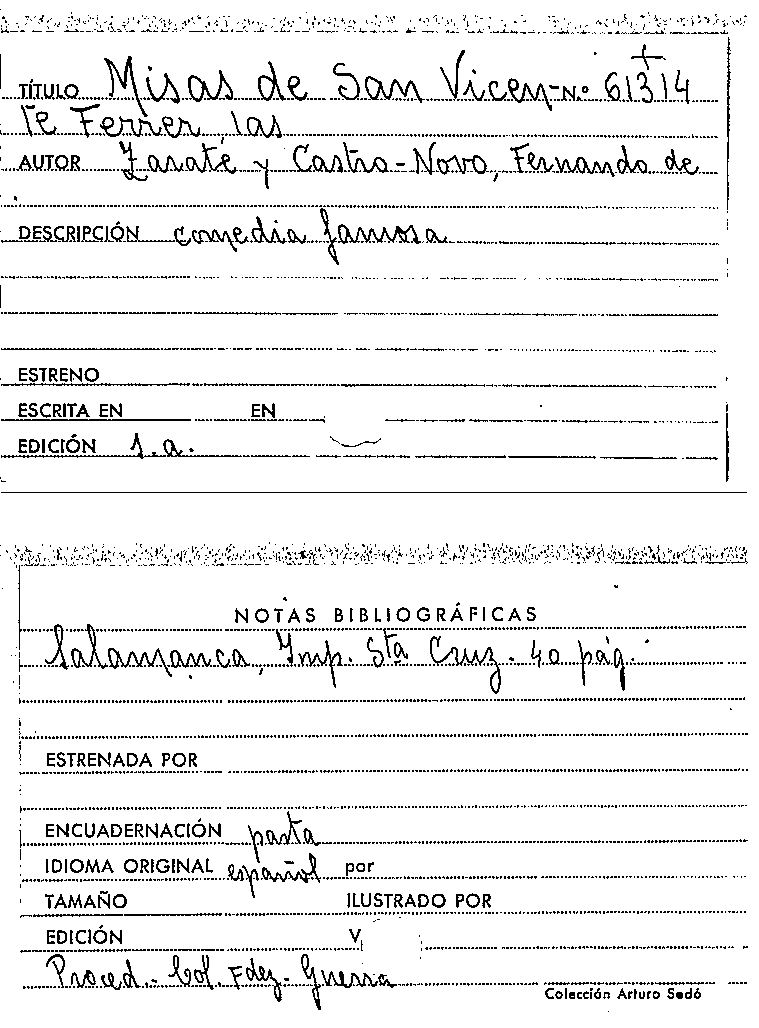 TÍTULO Misas de San Vicen- N.º 61314
te Ferrer, las
AUTOR Zarate y Castro-Novo, Fernando de
DESCRIPCIÓN comedia famosa
ESTRENO
ESCRITA EN EN
EDICIÓN s.a.
NOTAS BIBLIOGRÁFICAS
Salamanca, Imp. Sta Cruz. 40 pág.
ESTRENADA POR
ENCUADERNACIÓN pasta
IDIOMA ORIGINAL español por
TAMAÑO ILUSTRADO POR
EDICIÓN V
Proced.- Col. Fdez- Guerra
Colección Arturo Sedó